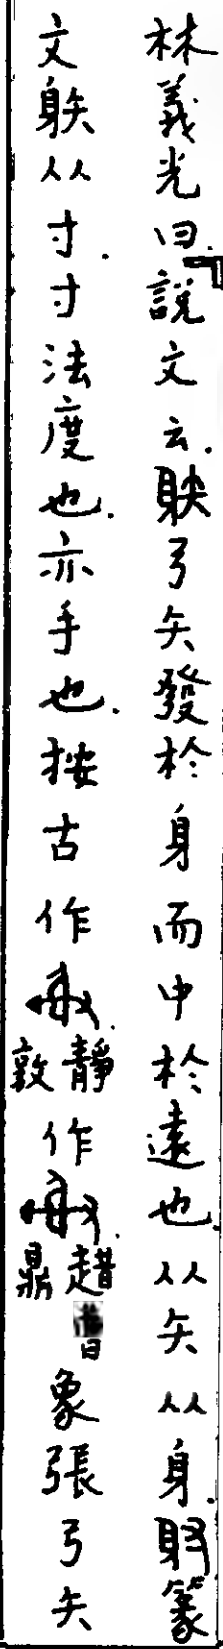 林義光曰「說文云䠶弓矢發於身而中於遠也从矢从身射篆
文䠶从寸寸法度也亦手也按古作靜敦作趞曹鼎象張弓矢